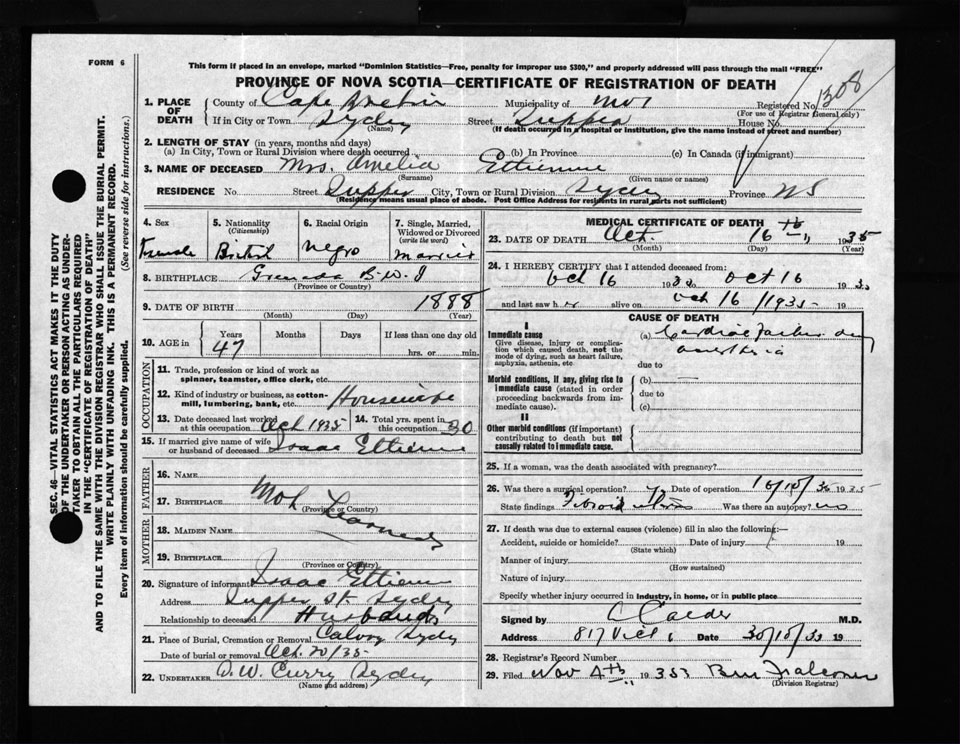 FORM 6
This form if placed in an envelope, marked "Dominion Statistics—Free, penalty for improper use $300," and properly addressed will pass through the mail "FREE"
PROVINCE OF NOVA SCOTIA—CERTIFICATE OF REGISTRATION OF DEATH
1308
SEC. 46—VITAL STATISTICS ACT MAKES IT THE DUTY
OF THE UNDERTAKER OR PERSON ACTING AS UNDER-
TAKER TO OBTAIN ALL THE PARTICULARS REQUIRED
IN THE "CERTIFICATE OF REGISTRATION OF DEATH"
AND TO FILE THE SAME WITH THE DIVISION REGISTRAR WHO SHALL ISSUE THE BURIAL PERMIT.
WRITE PLAINLY WITH UNFADING INK. THIS IS A PERMANENT RECORD.
Every item of information should be carefully supplied. (See reverse side for instructions.)
1. PLACE OF DEATH
County of Cape Breton Municipality of Registered No.
(For use of Registrar General only)
If in City or Town Sydney Street House No.
(Name) (If death occurred in a hospital or institution, give the name instead of street and number)
2. LENGTH OF STAY (in years, months and days)
(a) In City, Town or Rural Division where death occurred (b) In Province (c) In Canada (if immigrant)
3. NAME OF DECEASED Mrs. Amelia Ettienne
(Surname) (Given name or names)
RESIDENCE No. Street Tupper City, Town or Rural Division Sydney Province NS
(Residence means usual place of abode. Post Office Address for residents in rural parts not sufficient)
4. Sex
Female
5. Nationality
(Citizenship)
British
6. Racial Origin
Negro
7. Single, Married,
Widowed or Divorced
(write the word)
Married
8. BIRTHPLACE Grenada B.W.I
(Province or Country)
9. DATE OF BIRTH 1888
(Month) (Day) (Year)
10. AGE in
Years Months Days If less than one day old
47 hrs. or min.
OCCUPATION
11. Trade, profession or kind of work as
spinner, teamster, office clerk, etc.
12. Kind of industry or business, as cotton-
mill, lumbering, bank, etc. Housewife
13. Date deceased last worked
at this occupation Oct 1935
14. Total yrs. spent in
this occupation 30
15. If married give name of wife
or husband of deceased Isaac Ettienne
FATHER
16. NAME
17. BIRTHPLACE
(Province or Country)
Not Learned
MOTHER
18. MAIDEN NAME
19. BIRTHPLACE
(Province or Country)
20. Signature of informant Isaac Ettienne
Address Tupper St Sydney
Relationship to deceased Husband
21. Place of Burial, Cremation or Removal Calvary Sydney
Date of burial or removal Oct. 20/35
22. UNDERTAKER D.W. Curry Sydney
(Name and address)
MEDICAL CERTIFICATE OF DEATH
23. DATE OF DEATH Oct. 16th 1935
(Month) (Day) (Year)
24. I HEREBY CERTIFY that I attended deceased from:
Oct 16 193 to Oct 16 193
and last saw her alive on Oct 16 /1935 19
CAUSE OF DEATH
I
Immediate cause
Give disease, injury or complica-
tion which caused death, not the
mode of dying, such as heart failure,
asphyxia, asthenia, etc
(a) Cardiac
due to
Morbid conditions, if any, giving rise to
immediate cause (stated in order
proceeding backwards from im-
mediate cause).
(b)
due to
(c)
II
Other morbid conditions (if important)
contributing to death but not
causally related to immediate cause.
25. If a woman, was the death associated with pregnancy?
26. Was there a surgical operation? Date of operation 19
State findings Fibroid Was there an autopsy? no
27. If death was due to external causes (violence) fill in also the following:—
Accident, suicide or homicide? Date of injury 19
(State which)
Manner of injury
(How sustained)
Nature of injury
Specify whether injury occurred in industry, in home, or in public place
Signed by M.D.
Address 817 Vict Date 19
28. Registrar's Record Number
29. Filed Nov 4th 1935
(Division Registrar)